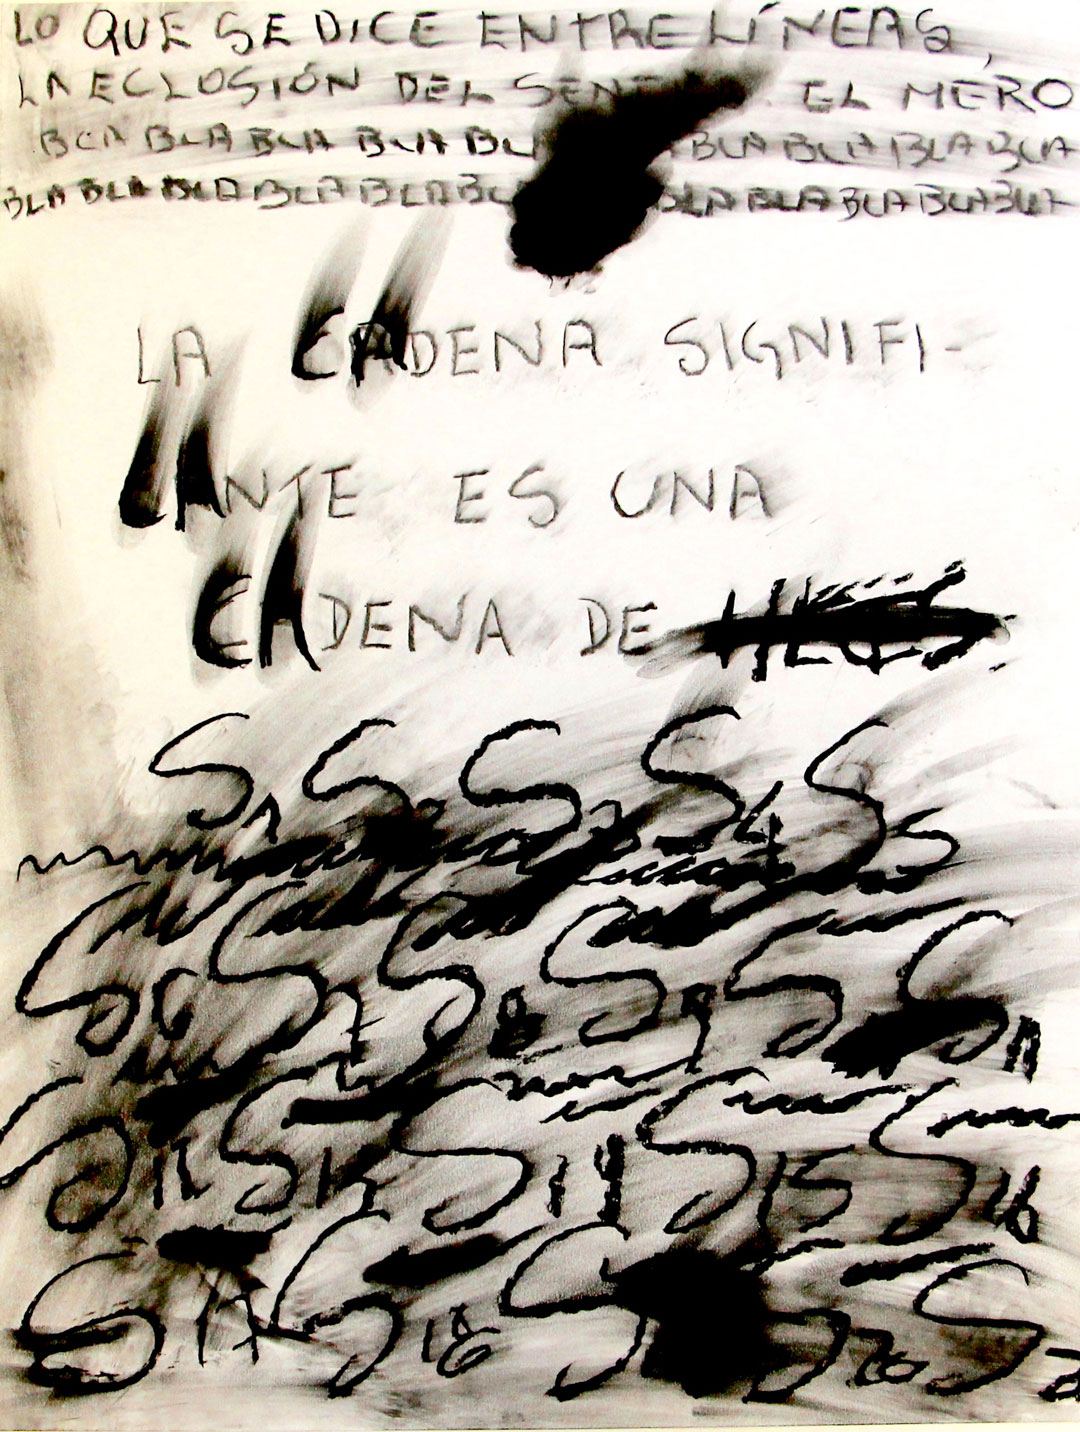 LO QUE SE DICE ENTRE LÍNEAS,
LA ECLOSIÓN DEL EL MERO
BLA BLA BLA BLA BLA BLA BLA BLA
BLA BLA BLA BLA BLA BLA BLA BLA BLA BLA
LA CADENA SIGNIFI-
CANTE ES UNA
CADENA DE
S1 S2 S3 S4 S5
S6 S7 S8 S9 S S11
S12 S13 S14 S15 S16
S17 S18 S S20 S